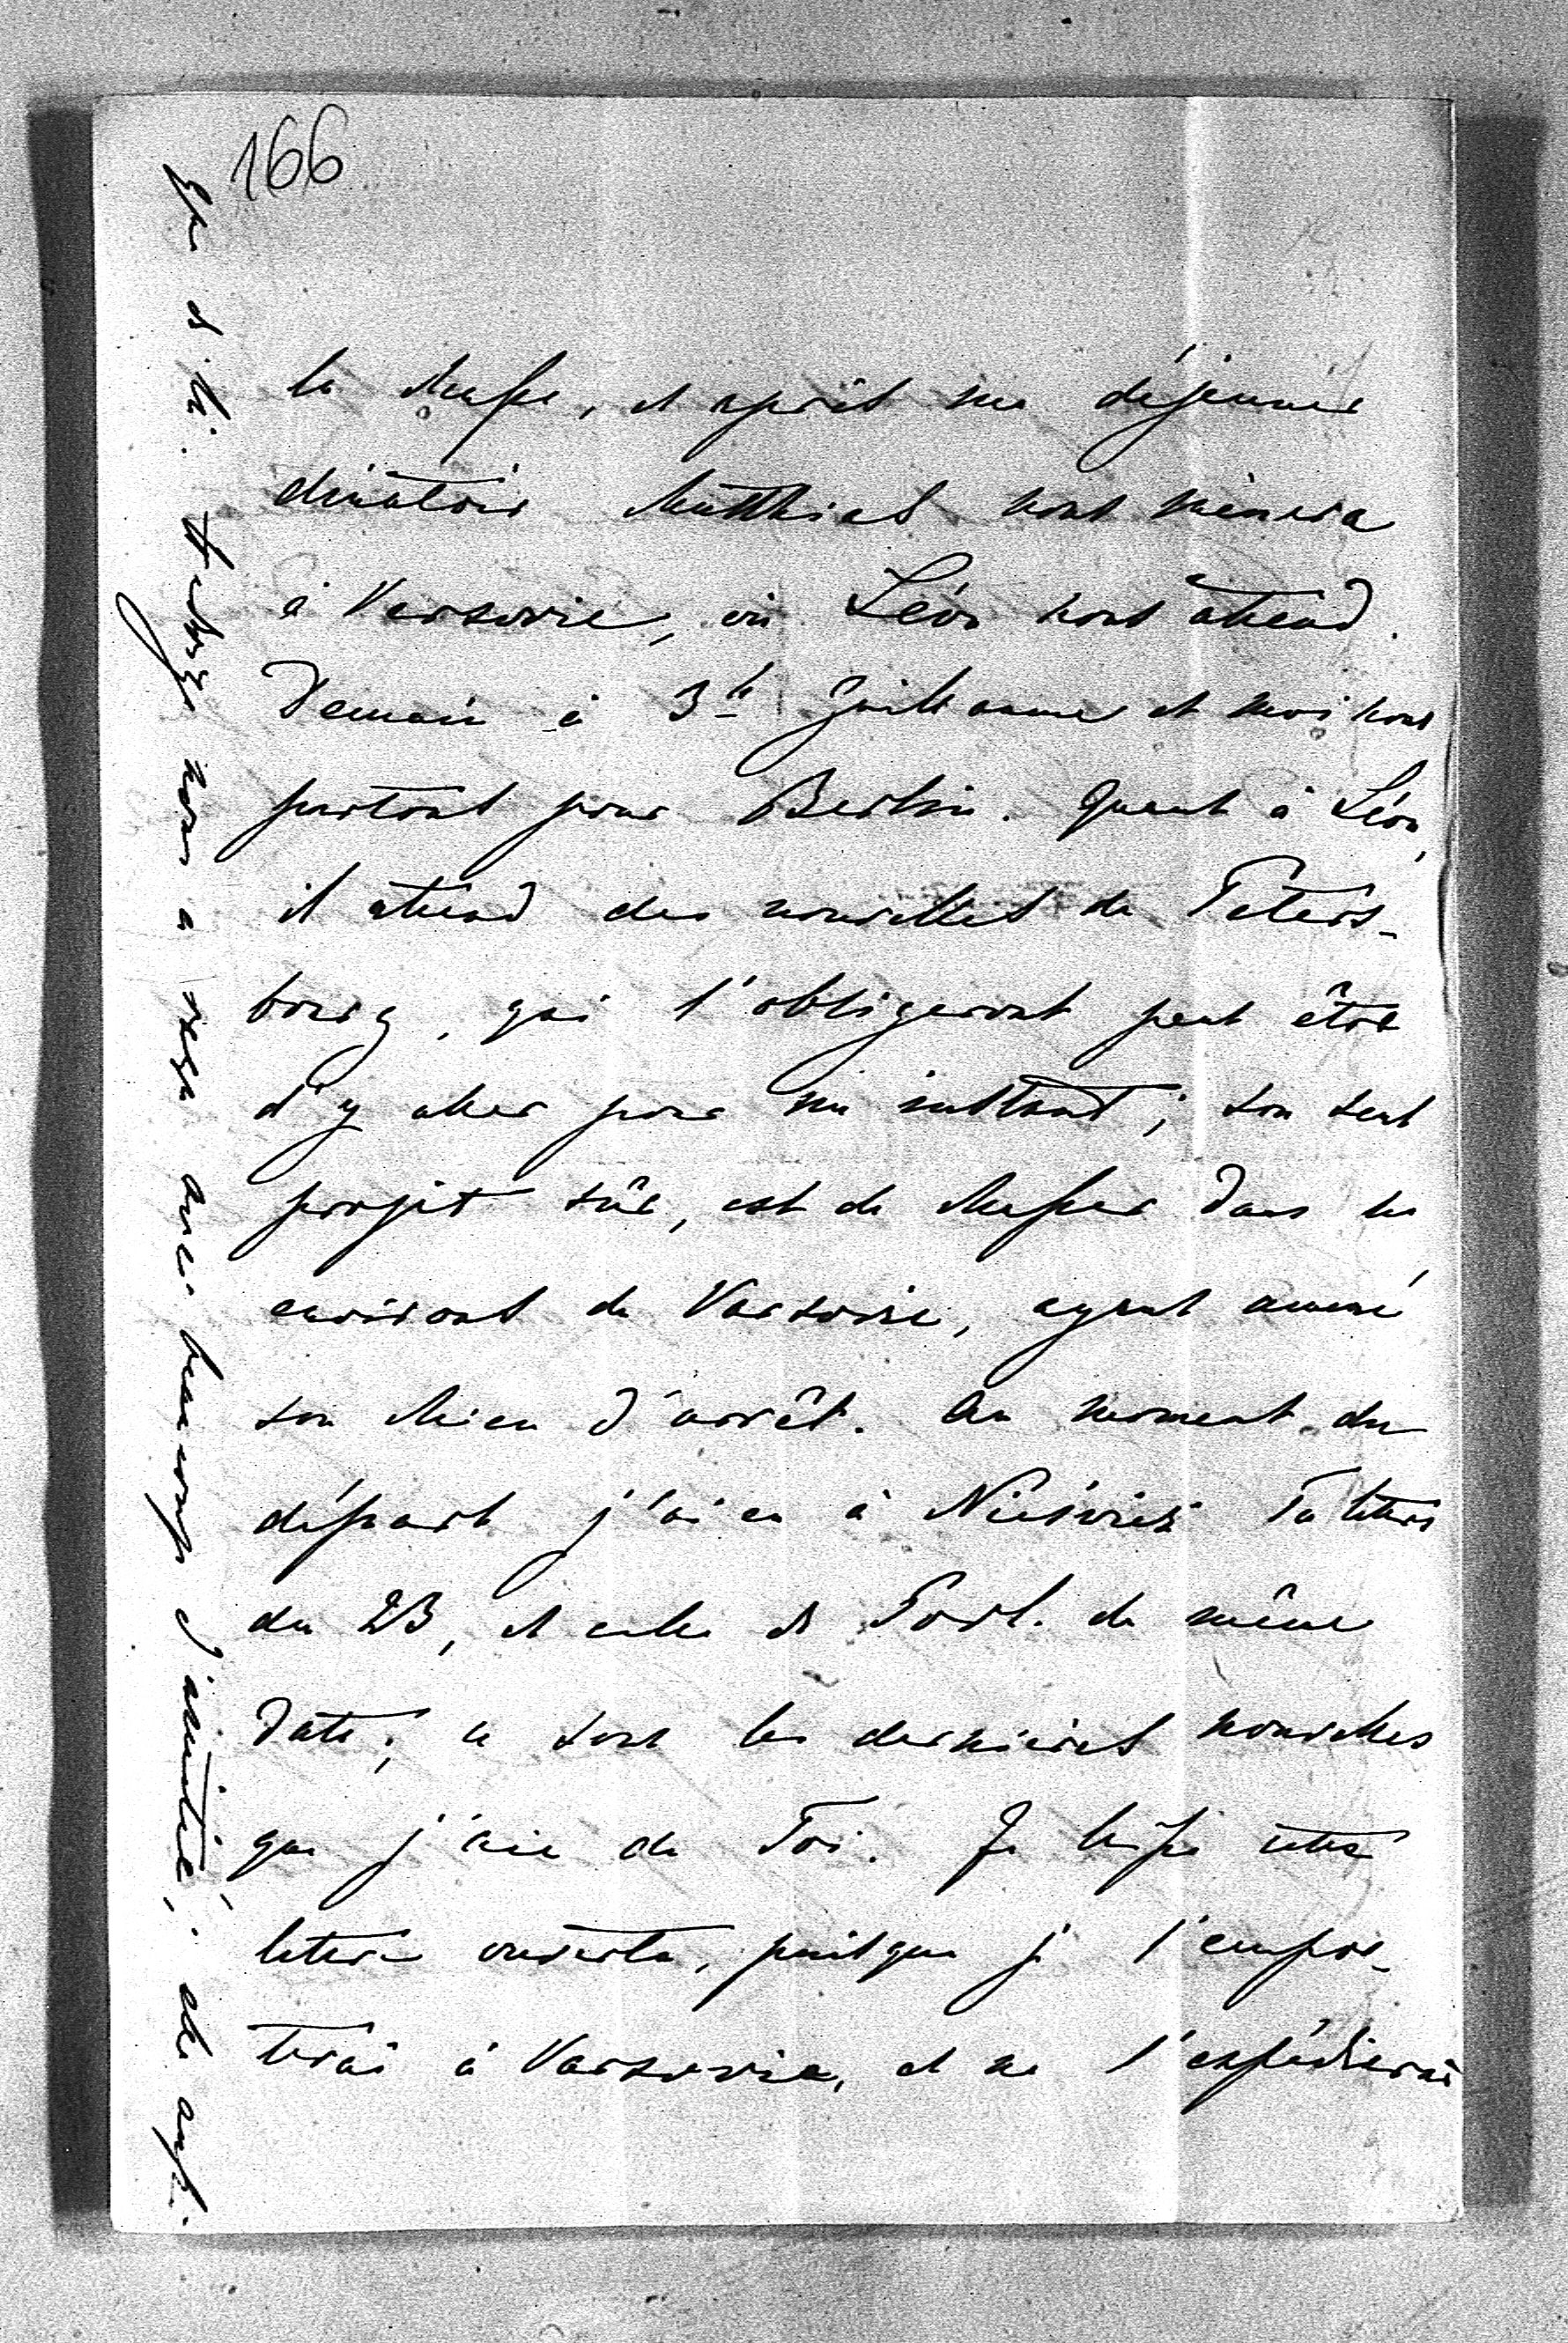 166
la chasse, et après un déjeuner
dînatoir Matthias nous mènera
à Varsovie, où Léon nous attend.
Demain à 3h Guillaume et moi nous
partons pour Berlin. Quant à Léon,
il attend des nouvelles de Peters-
bourg, qui l'obligeront peut être
d'y aller pour un instant; son seul
projet sûr, est de chasser dans les
environs de Varsovie, ayant amené
son chien d'arrêt. Au moment du
départ j'ai eu à Nieśwież Ta lettre
du 23, et celle de Posl. de même
date; ce sont les dernières nouvelles
que j'aie de Toi. Je laisse cette
lettre ouverte, puisque je l'empor-
terai à Varsovie, et ne l'expédierai
nous a reçu avec beaucoup d'amitié, elle aussi.